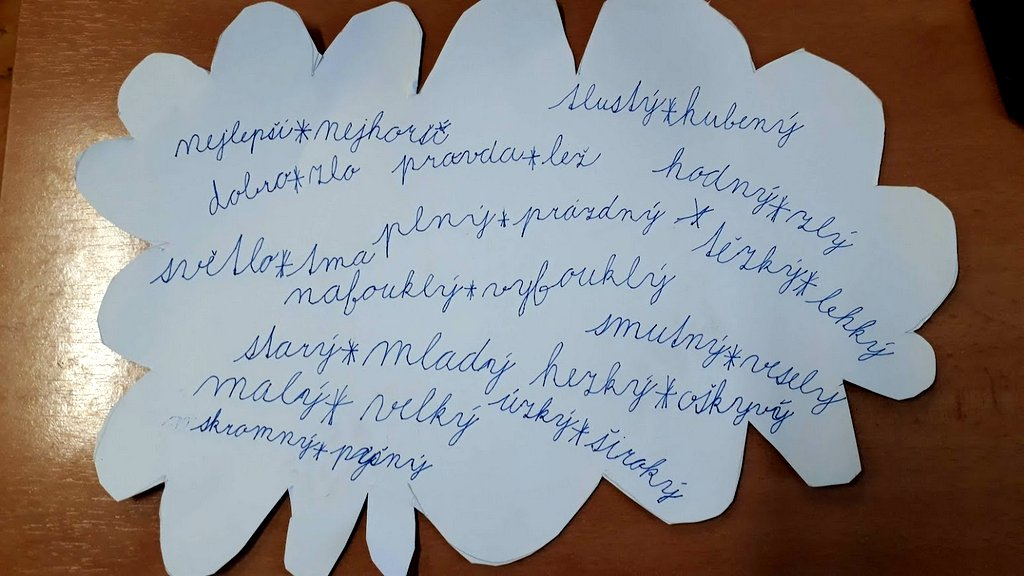 tlustý * hubený
nejlepší * nejhorší
dobro * zlo
pravda * lež
hodný * zlý
plný * prázdný *
těžký * lehký
světlo * tma
nafouklý * vyfouklý
smutný * veselý
starý * mladý
hezký * oškyvý
malý * velký
úzký * široký
skromný * pyšný